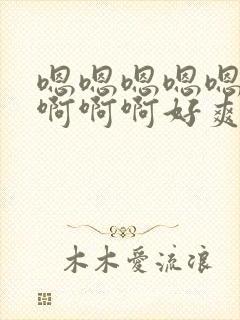 嗯嗯嗯嗯嗯
啊啊啊好爽
木木愛流浪